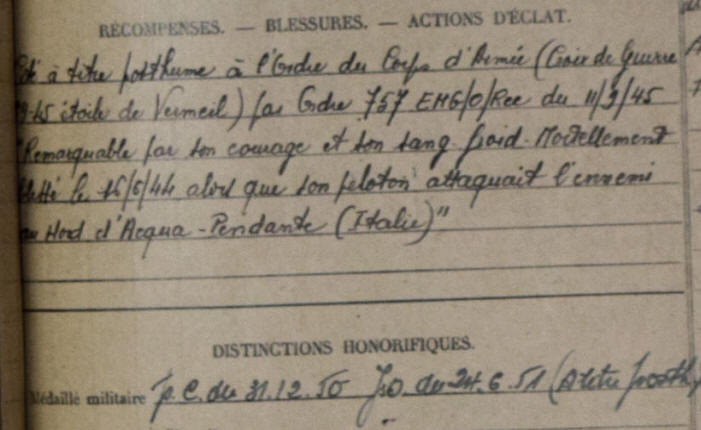 RÉCOMPENSES. — BLESSURES. — ACTIONS D'ÉCLAT.
Cité à titre posthume à l'Ordre du Corps d'Armée (Croix de Guerre
39-45 étoile de Vermeil) par Ordre 757 EMG/O/Rec du 11/9/45
"Remarquable par son courage et son sang froid. Mortellement
blessé le 16/6/44 alors que son peloton attaquait l'ennemi
au Nord d'Acqua-Pendante (Italie)"
DISTINCTIONS HONORIFIQUES.
Médaillé militaire p.C. du 31.12.50 JO. du 24.6.51 (A titre posth